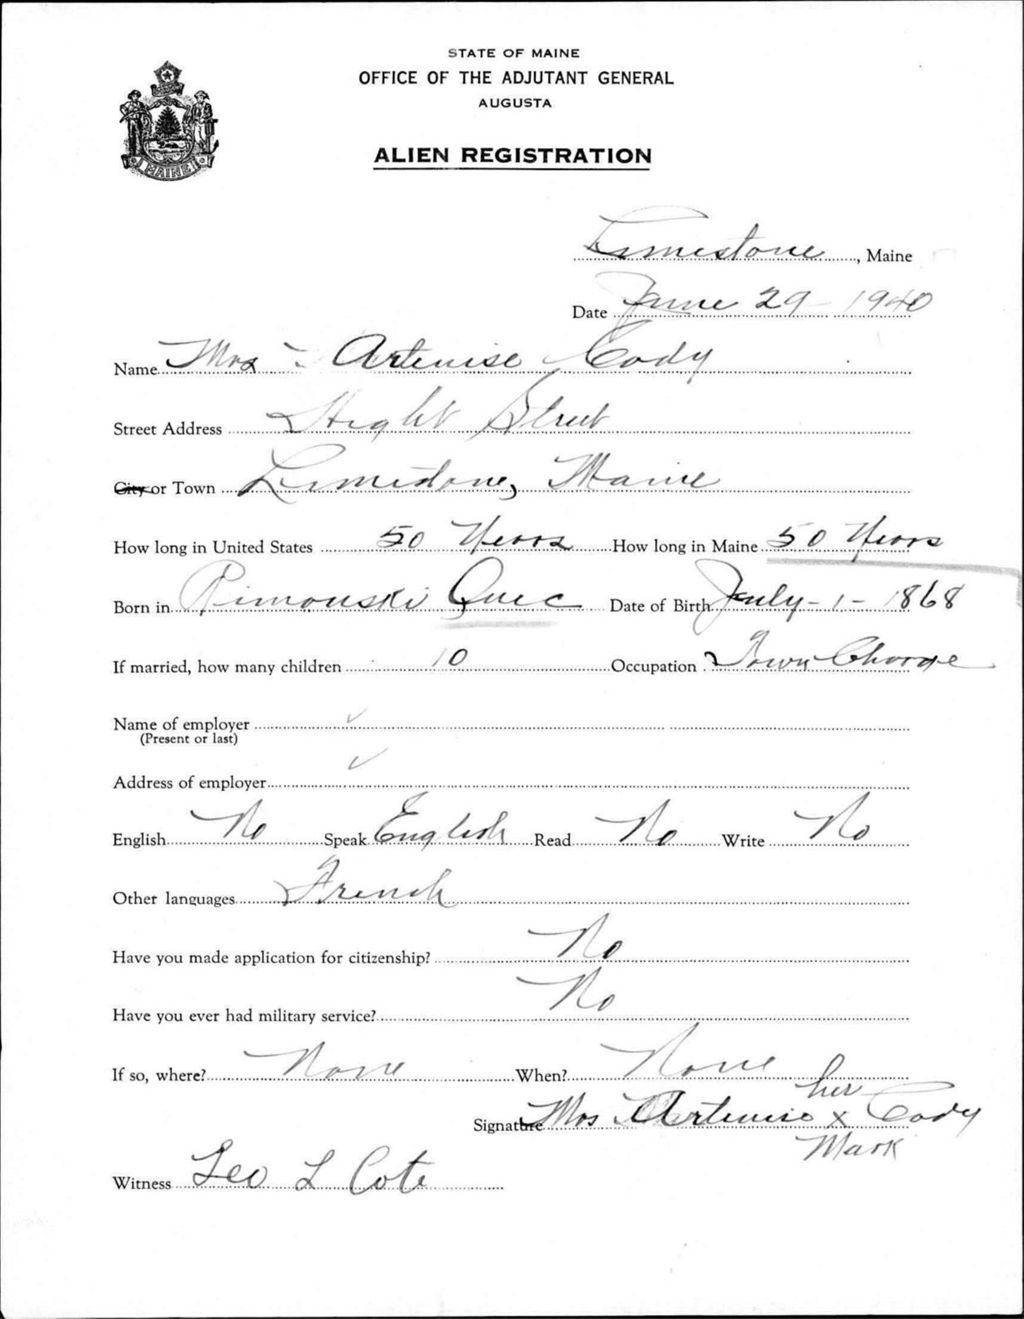 STATE OF MAINE
OFFICE OF THE ADJUTANT GENERAL
AUGUSTA
ALIEN REGISTRATION
MAINE
Limestone, Maine
Date June 29 - 1940
Name Mrs Artenise Cody
Street Address Hight Street
City or Town Limestone, Maine
How long in United States 50 Years How long in Maine 50 Years
Born in Rimouski Quec Date of Birth July - 1 - 1868
If married, how many children 10 Occupation Town Charge
Name of employer
(Present or last)
Address of employer
English No Speak English Read No Write No
Other languages French
Have you made application for citizenship? No
Have you ever had military service? No
If so, where? None When? None
her
Signature Mrs Artenise x Cody
Mark
Witness Leo L Cote